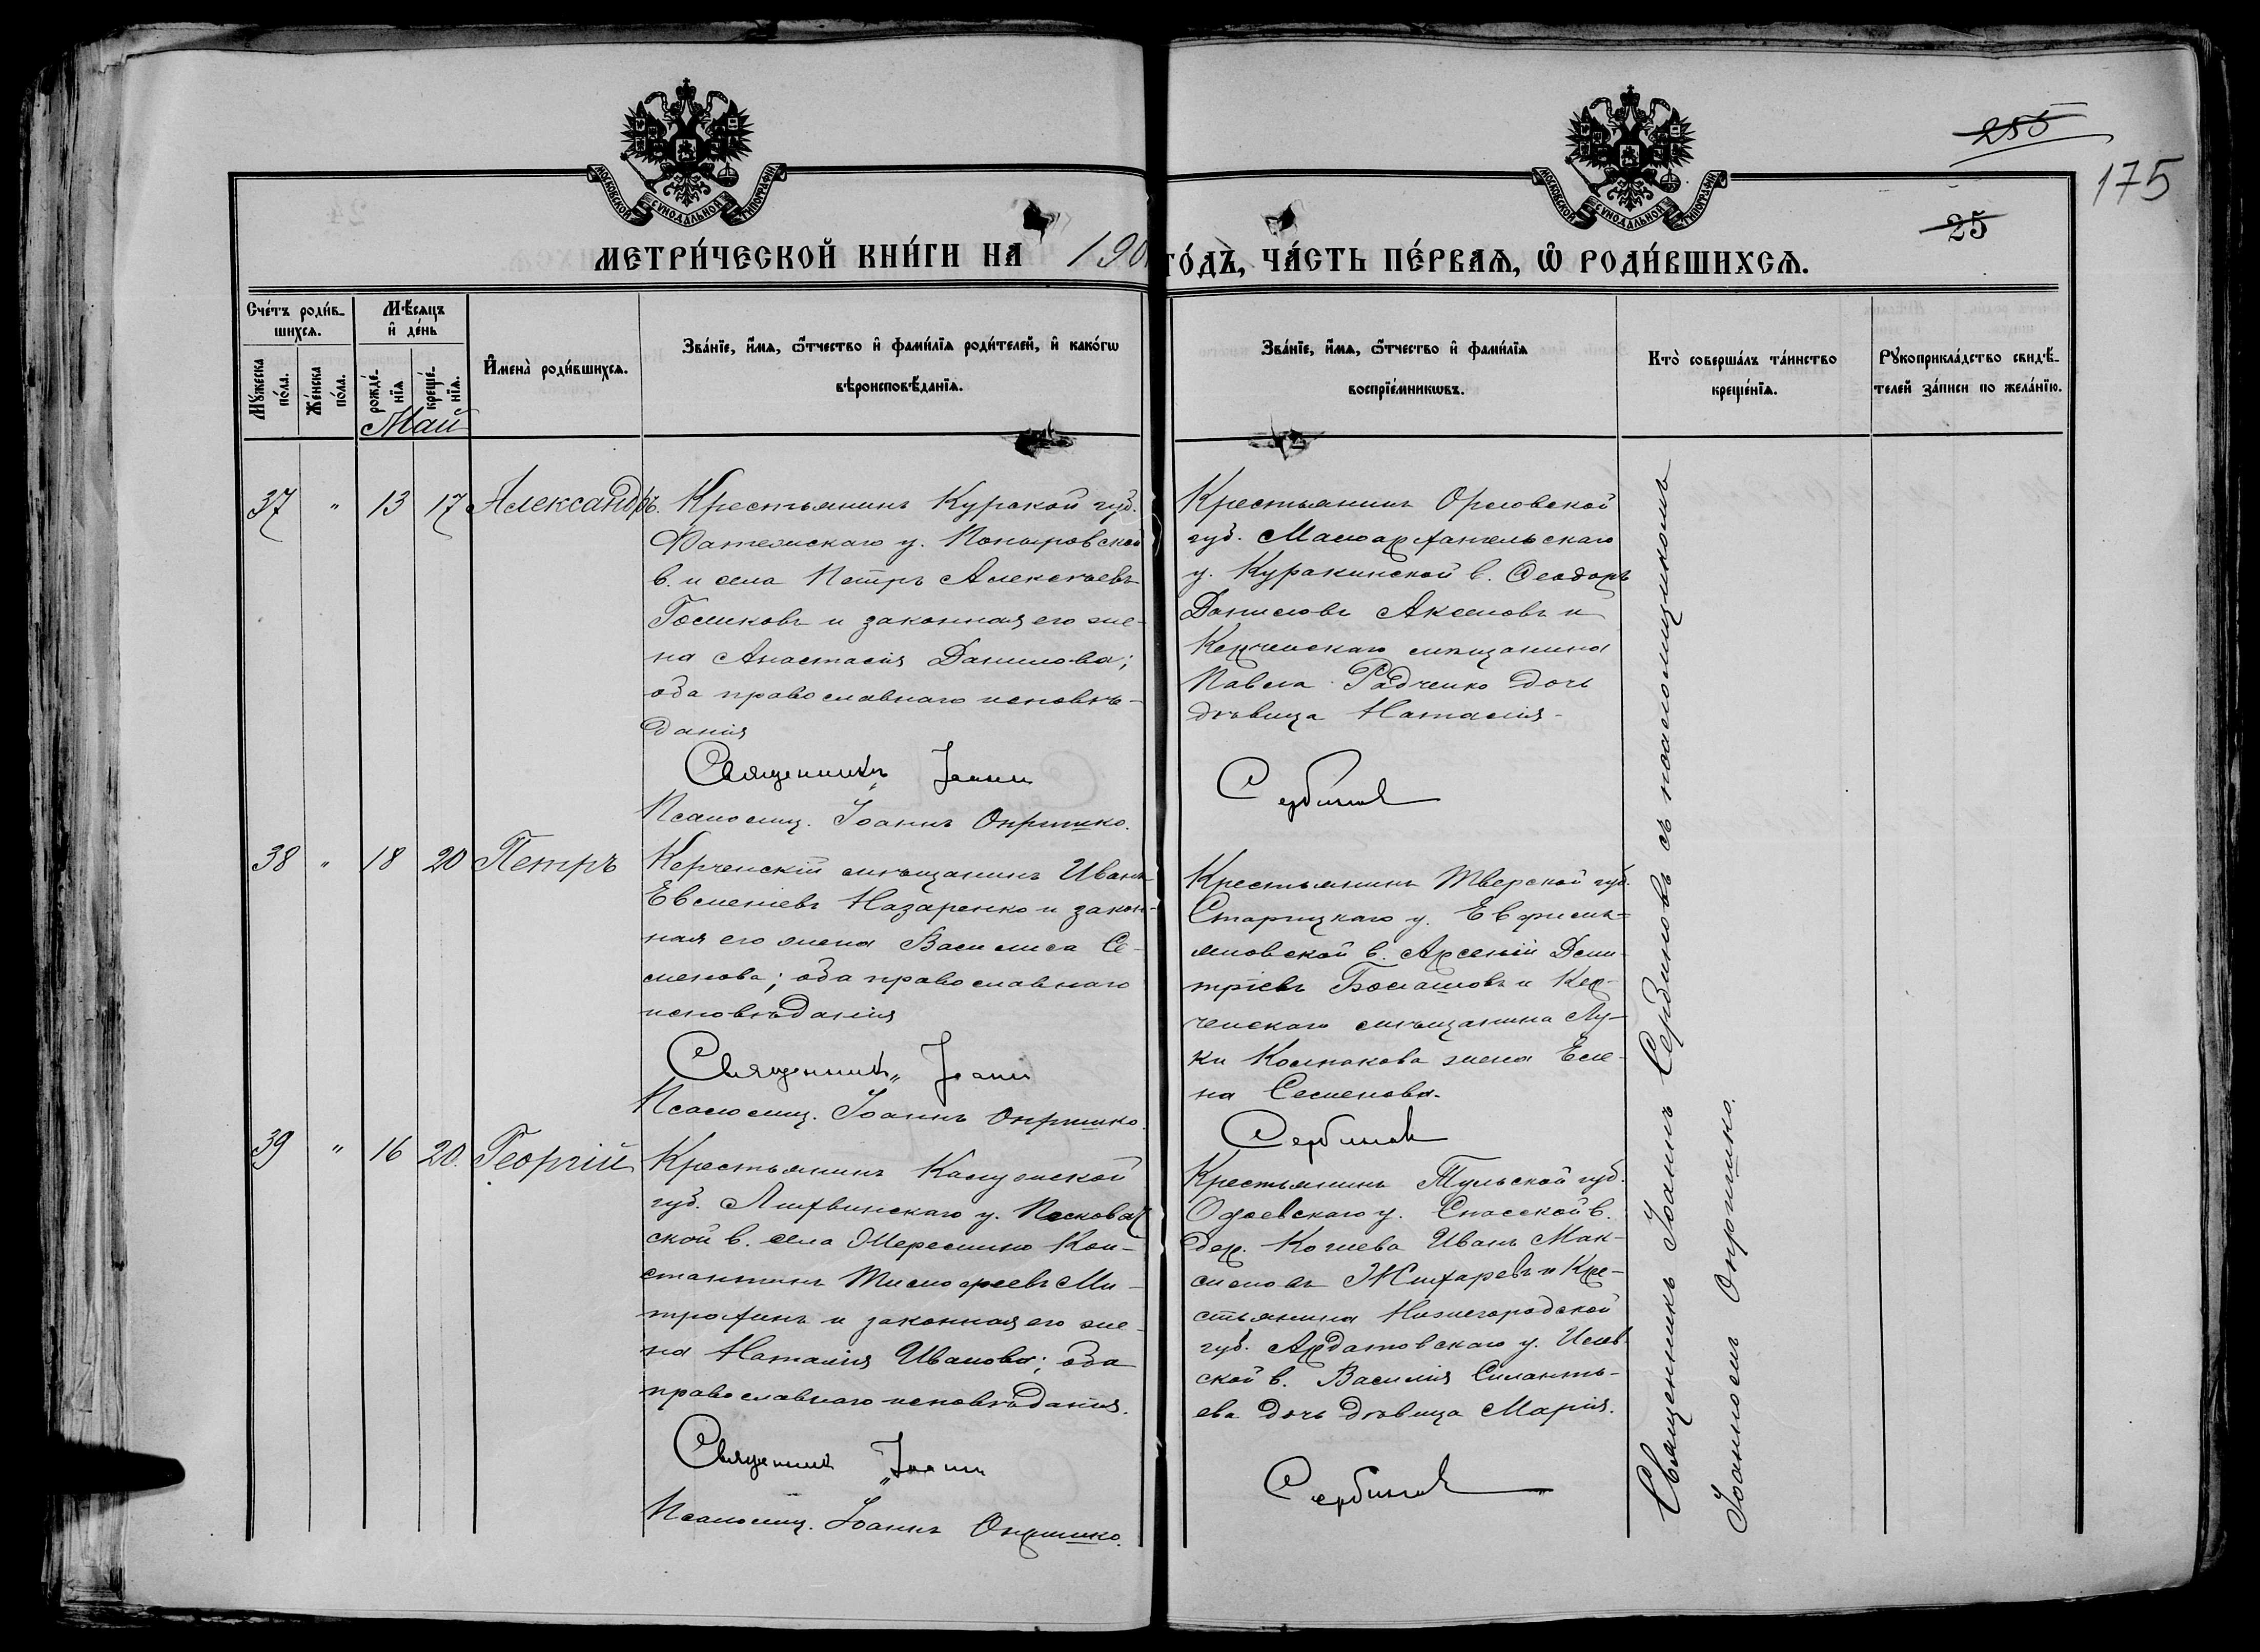 МОСКОВСКОЙ СѴНОДАЛЬНОЙ ТИПОГРАФІИ
МОСКОВСКОЙ СѴНОДАЛЬНОЙ ТИПОГРАФІИ
255
175
25
МЕТРИ́ЧЕСКОЙ КНИ́ГИ НА 190
ГО́ДЪ, ЧА́СТЬ ПЕ́РВАѦ, Ѡ҆ РОДИ́ВШИХСѦ.
Сче́тъ роди́в-
шихсѧ.
Мꙋ́жеска по́ла.
Же́нска по́ла.
Мѣ́сѧцъ
и҆ де́нь
рожде́-нїѧ
креще́-нїѧ.
Май
И҆мена̀ роди́вшихсѧ.
Зва́нїе, и҆́мѧ, ѻ҆́тчество и҆ фами́лїѧ роди́телей, и҆ како́гѡ
вѣроисповѣ́данїѧ.
Зва́нїе, и҆́мѧ, ѻ҆́тчество и҆ фами́лїѧ
воспрїе́мникѡвъ.
Кто̀ соверша́лъ та́инство
креще́нїѧ.
Рꙋкоприкла́дство свидѣ́-
телей за́писи по жела́нїю.
37 " 13 17 Александръ.
Крестьянинъ Курской губ.
Фатежскаго у. Поныровской
в. и села Петръ Алексѣевъ
Голиковъ и законная его же-
на Анастасія Данилова;
оба православнаго исповѣ-
данія
Священникъ Іоаннъ
Псаломщ. Іоаннъ Опришко.
Крестьянинъ Орловской
губ. Малоархангельскаго
у. Куракинской в. Ѳеодоръ
Даниловъ Акимовъ и
Керченскаго мѣщанина
Павла Радченко дочь
дѣвица Наталія.
Сербиновъ
38 " 18 20 Петръ
Керченскій мѣщанинъ Иванъ
Евменіевъ Назаренко и закон-
ная его жена Василиса Се-
менова; оба православнаго
исповѣданія
Священникъ Іоаннъ
Псаломщ. Іоаннъ Опришко.
Крестьянинъ Тверской губ.
Старицкаго у. Ефимь-
яновской в. Арсеній Дми-
тріевъ и Кер-
ченскаго мѣщанина Лу-
ки Колпакова жена Еле-
на Семенова.
Сербиновъ
39 " 16 20. Георгій
Крестьянинъ Калужской
губ. Лихвинскаго у. Песковат-
ской в. села Жеремино Кон-
стантинъ Тимофеевъ Ми-
трохинъ и законная его же-
на Наталія Иванова; оба
православнаго исповѣданія.
Священникъ Іоаннъ
Псаломщ. Іоаннъ Опришко.
Крестьянинъ Тульской губ.
Одоевскаго у. Спасской в.
дер. Иванъ Мак-
симовъ Жихаревъ и Кре-
стьянина Нижегородской
губ. Ардатовскаго у.
ской в. Василія Силанть-
ева дочь дѣвица Марія.
Сербиновъ
Священникъ Іоаннъ Сербиновъ съ псаломщикомъ
Іоанномъ Опришко.